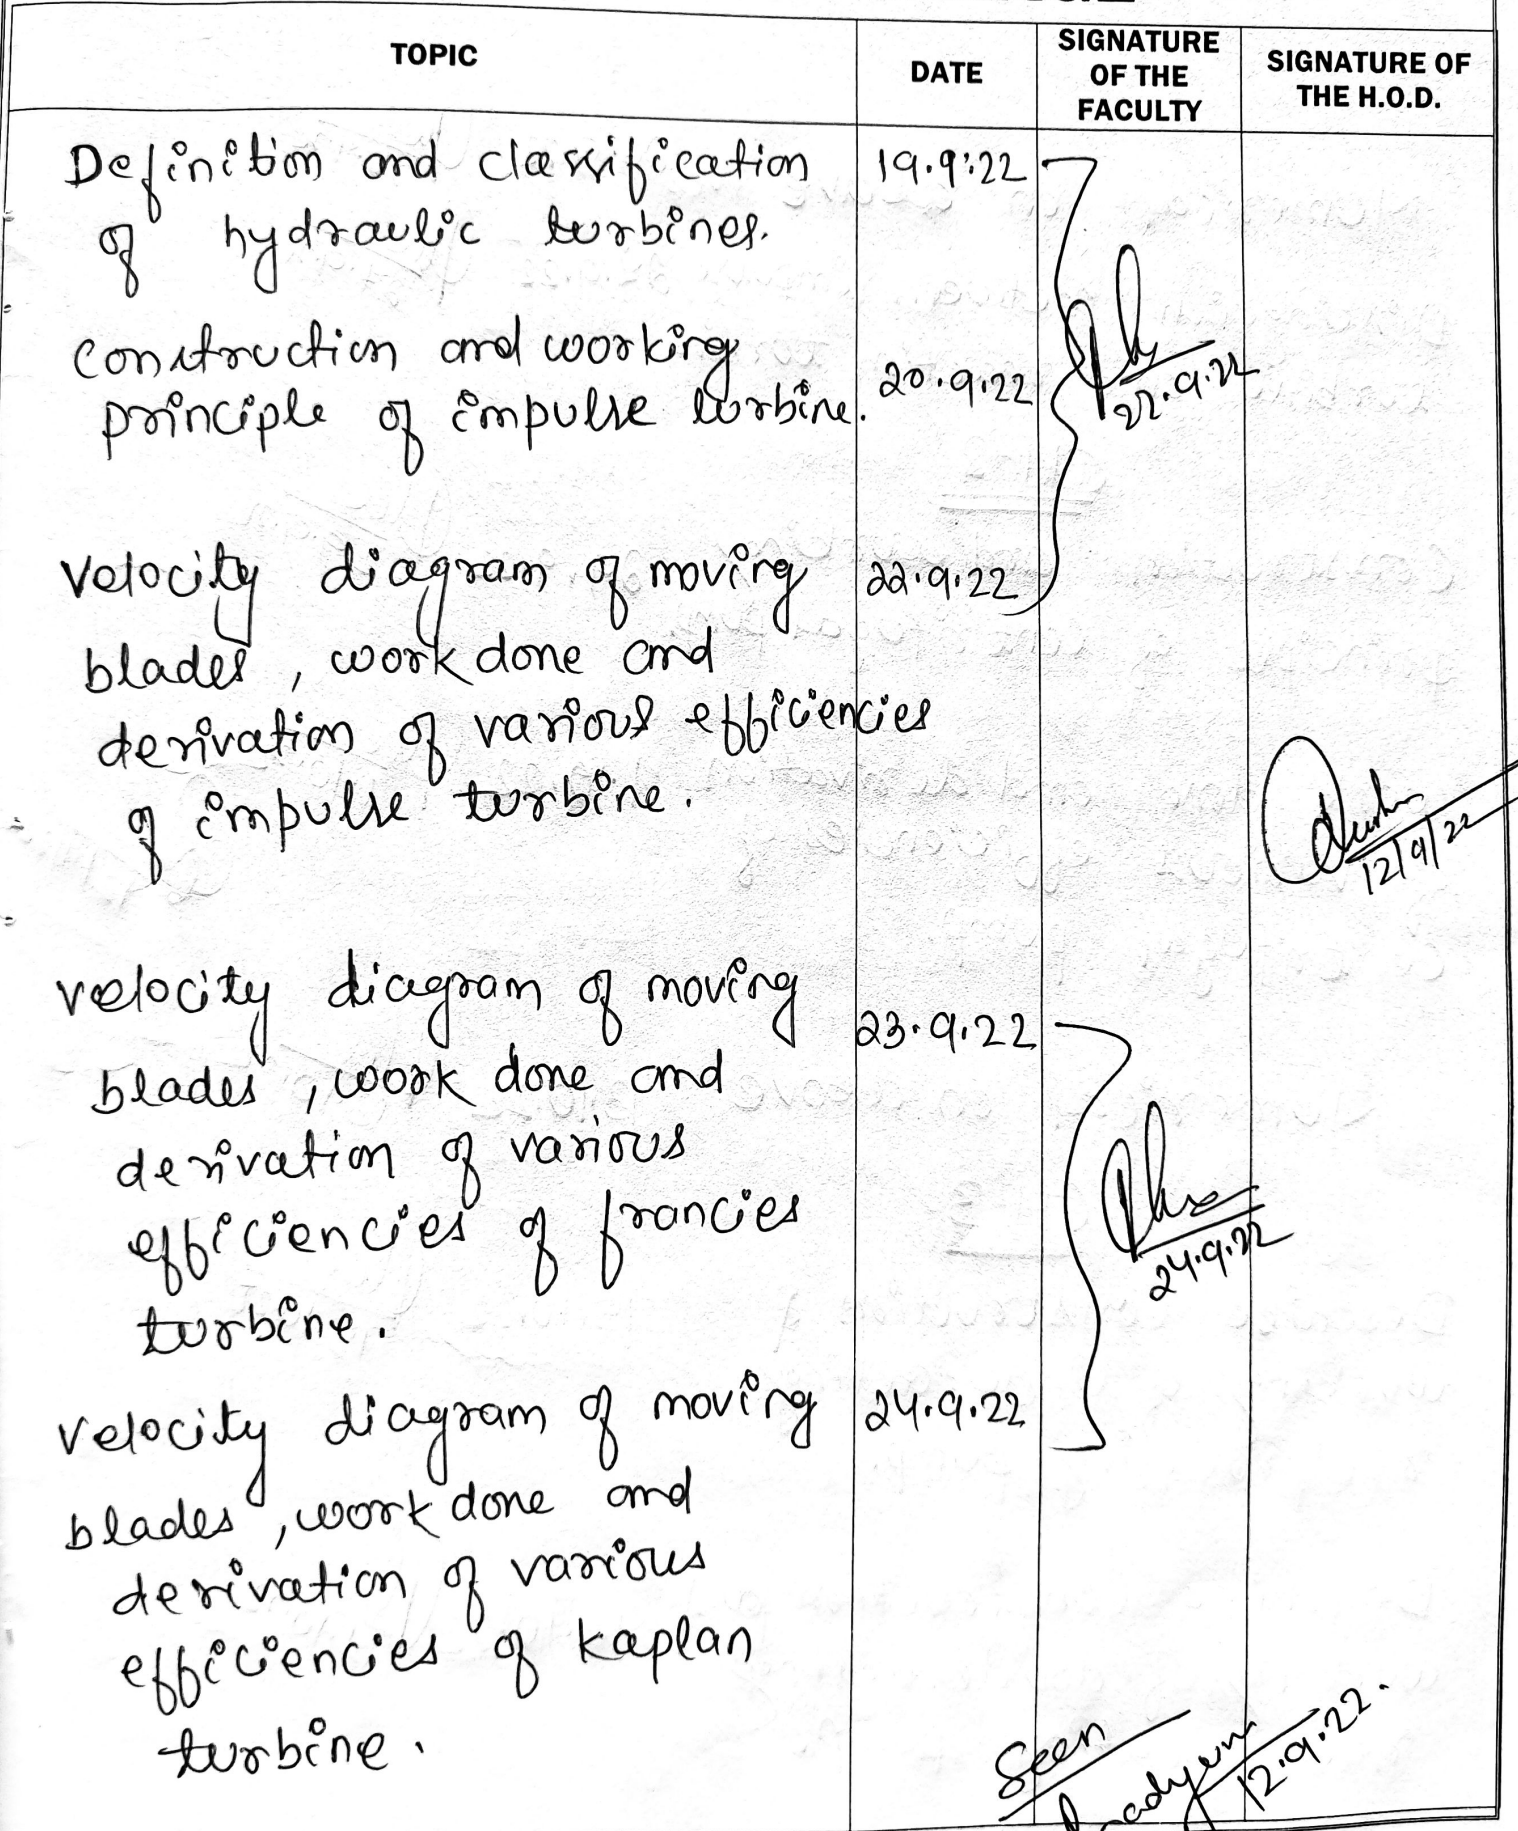 TOPIC
DATE
SIGNATURE
OF THE
FACULTY
SIGNATURE OF
THE H.O.D.
Definition and classification
of hydraulic turbines.
19.9.22
Construction and working
principle of impulse turbine.
20.9.22
22.9.22
Velocity diagram of moving
blades, work done and
derivation of various efficiencies
of impulse turbine.
22.9.22
12/9/22
velocity diagram of moving
blades, work done and
derivation of various
efficiencies of francies
turbine.
23.9.22
24.9.22
velocity diagram of moving
blades, work done and
derivation of various
efficiencies of kaplan
turbine.
24.9.22
Seen
12.9.22.